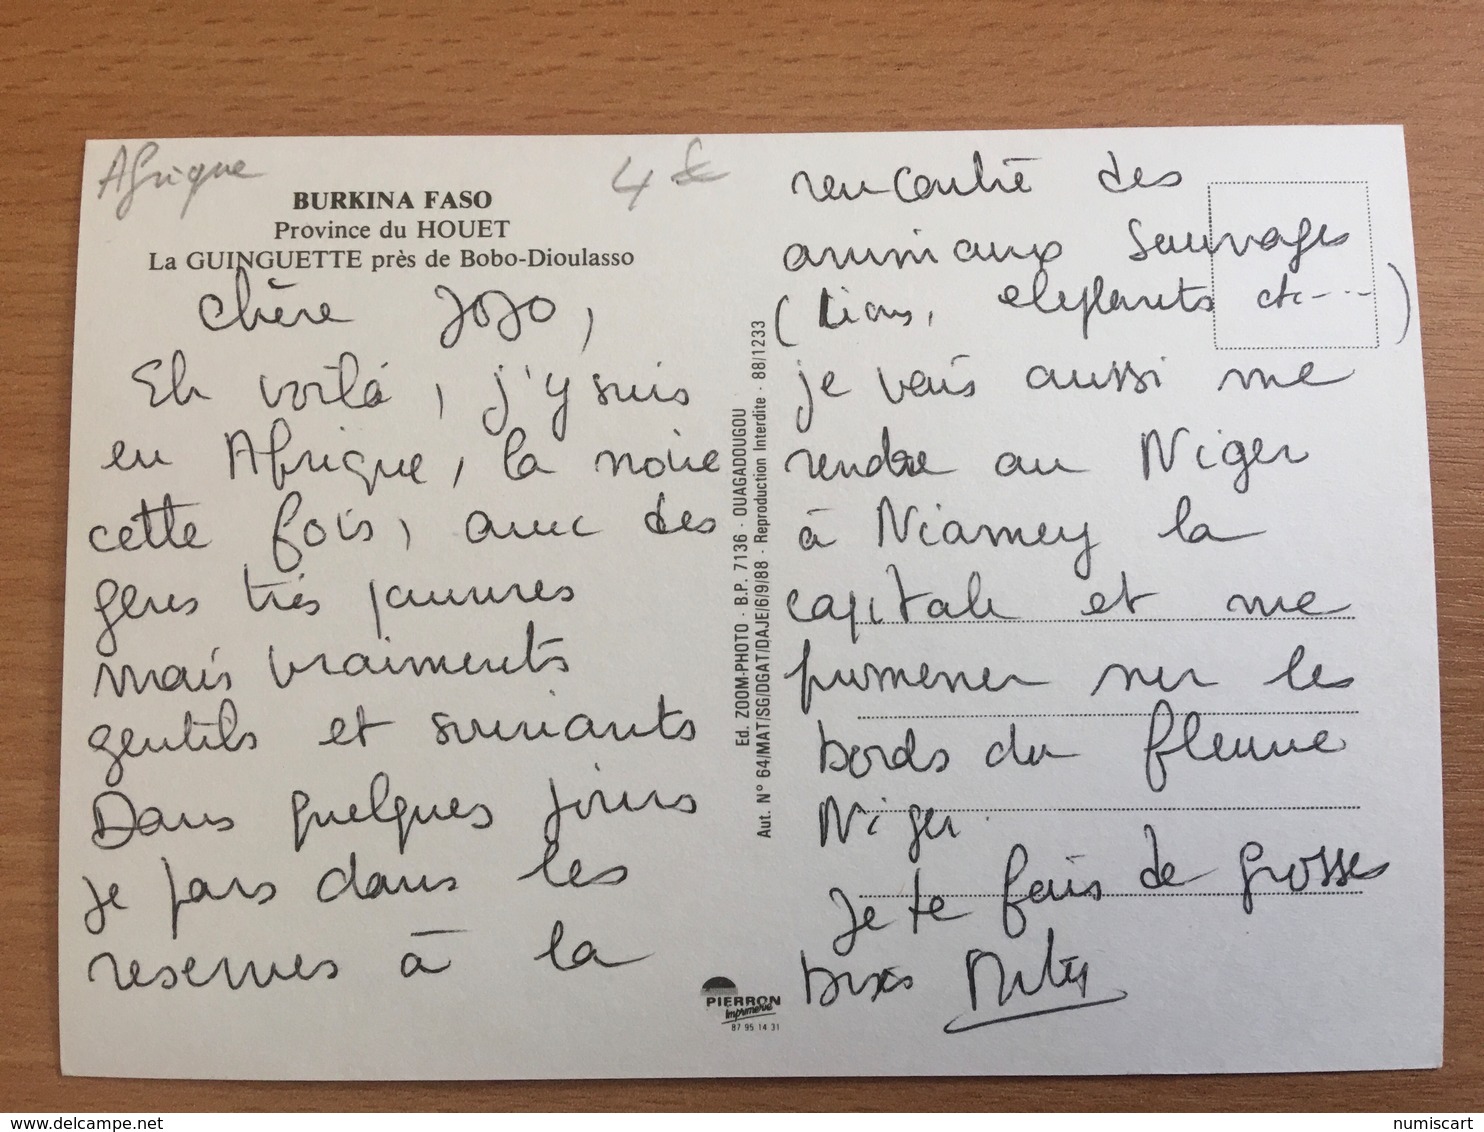 Afrique
4
BURKINA FASO
Province du HOUET
La GUINGUETTE près de Bobo-Dioulasso
Chère JOJO,
Eh voilà, j'y suis
en Afrique, la noire
cette fois, avec des
gens très pauvres
mais vraiments
gentils et souriants
Dans quelques jours
je pars dans les
reserves à la
Ed. ZOOM-PHOTO - B.P. 7136 - OUAGADOUGOU
Aut. N° 64/MAT/SG/DGAT/DAJE/6/9/88 - Reproduction Interdite - 88/1233
PIERRON
Imprimerie
87 95 14 31
rencontre des
animaux sauvages
(Lions, elephants etc----)
je vais aussi me
rendre au Niger
à Niamey la
capitale et me
promener sur les
bords du fleuve
Niger.
Je te fais de grosses
bises
numiscart